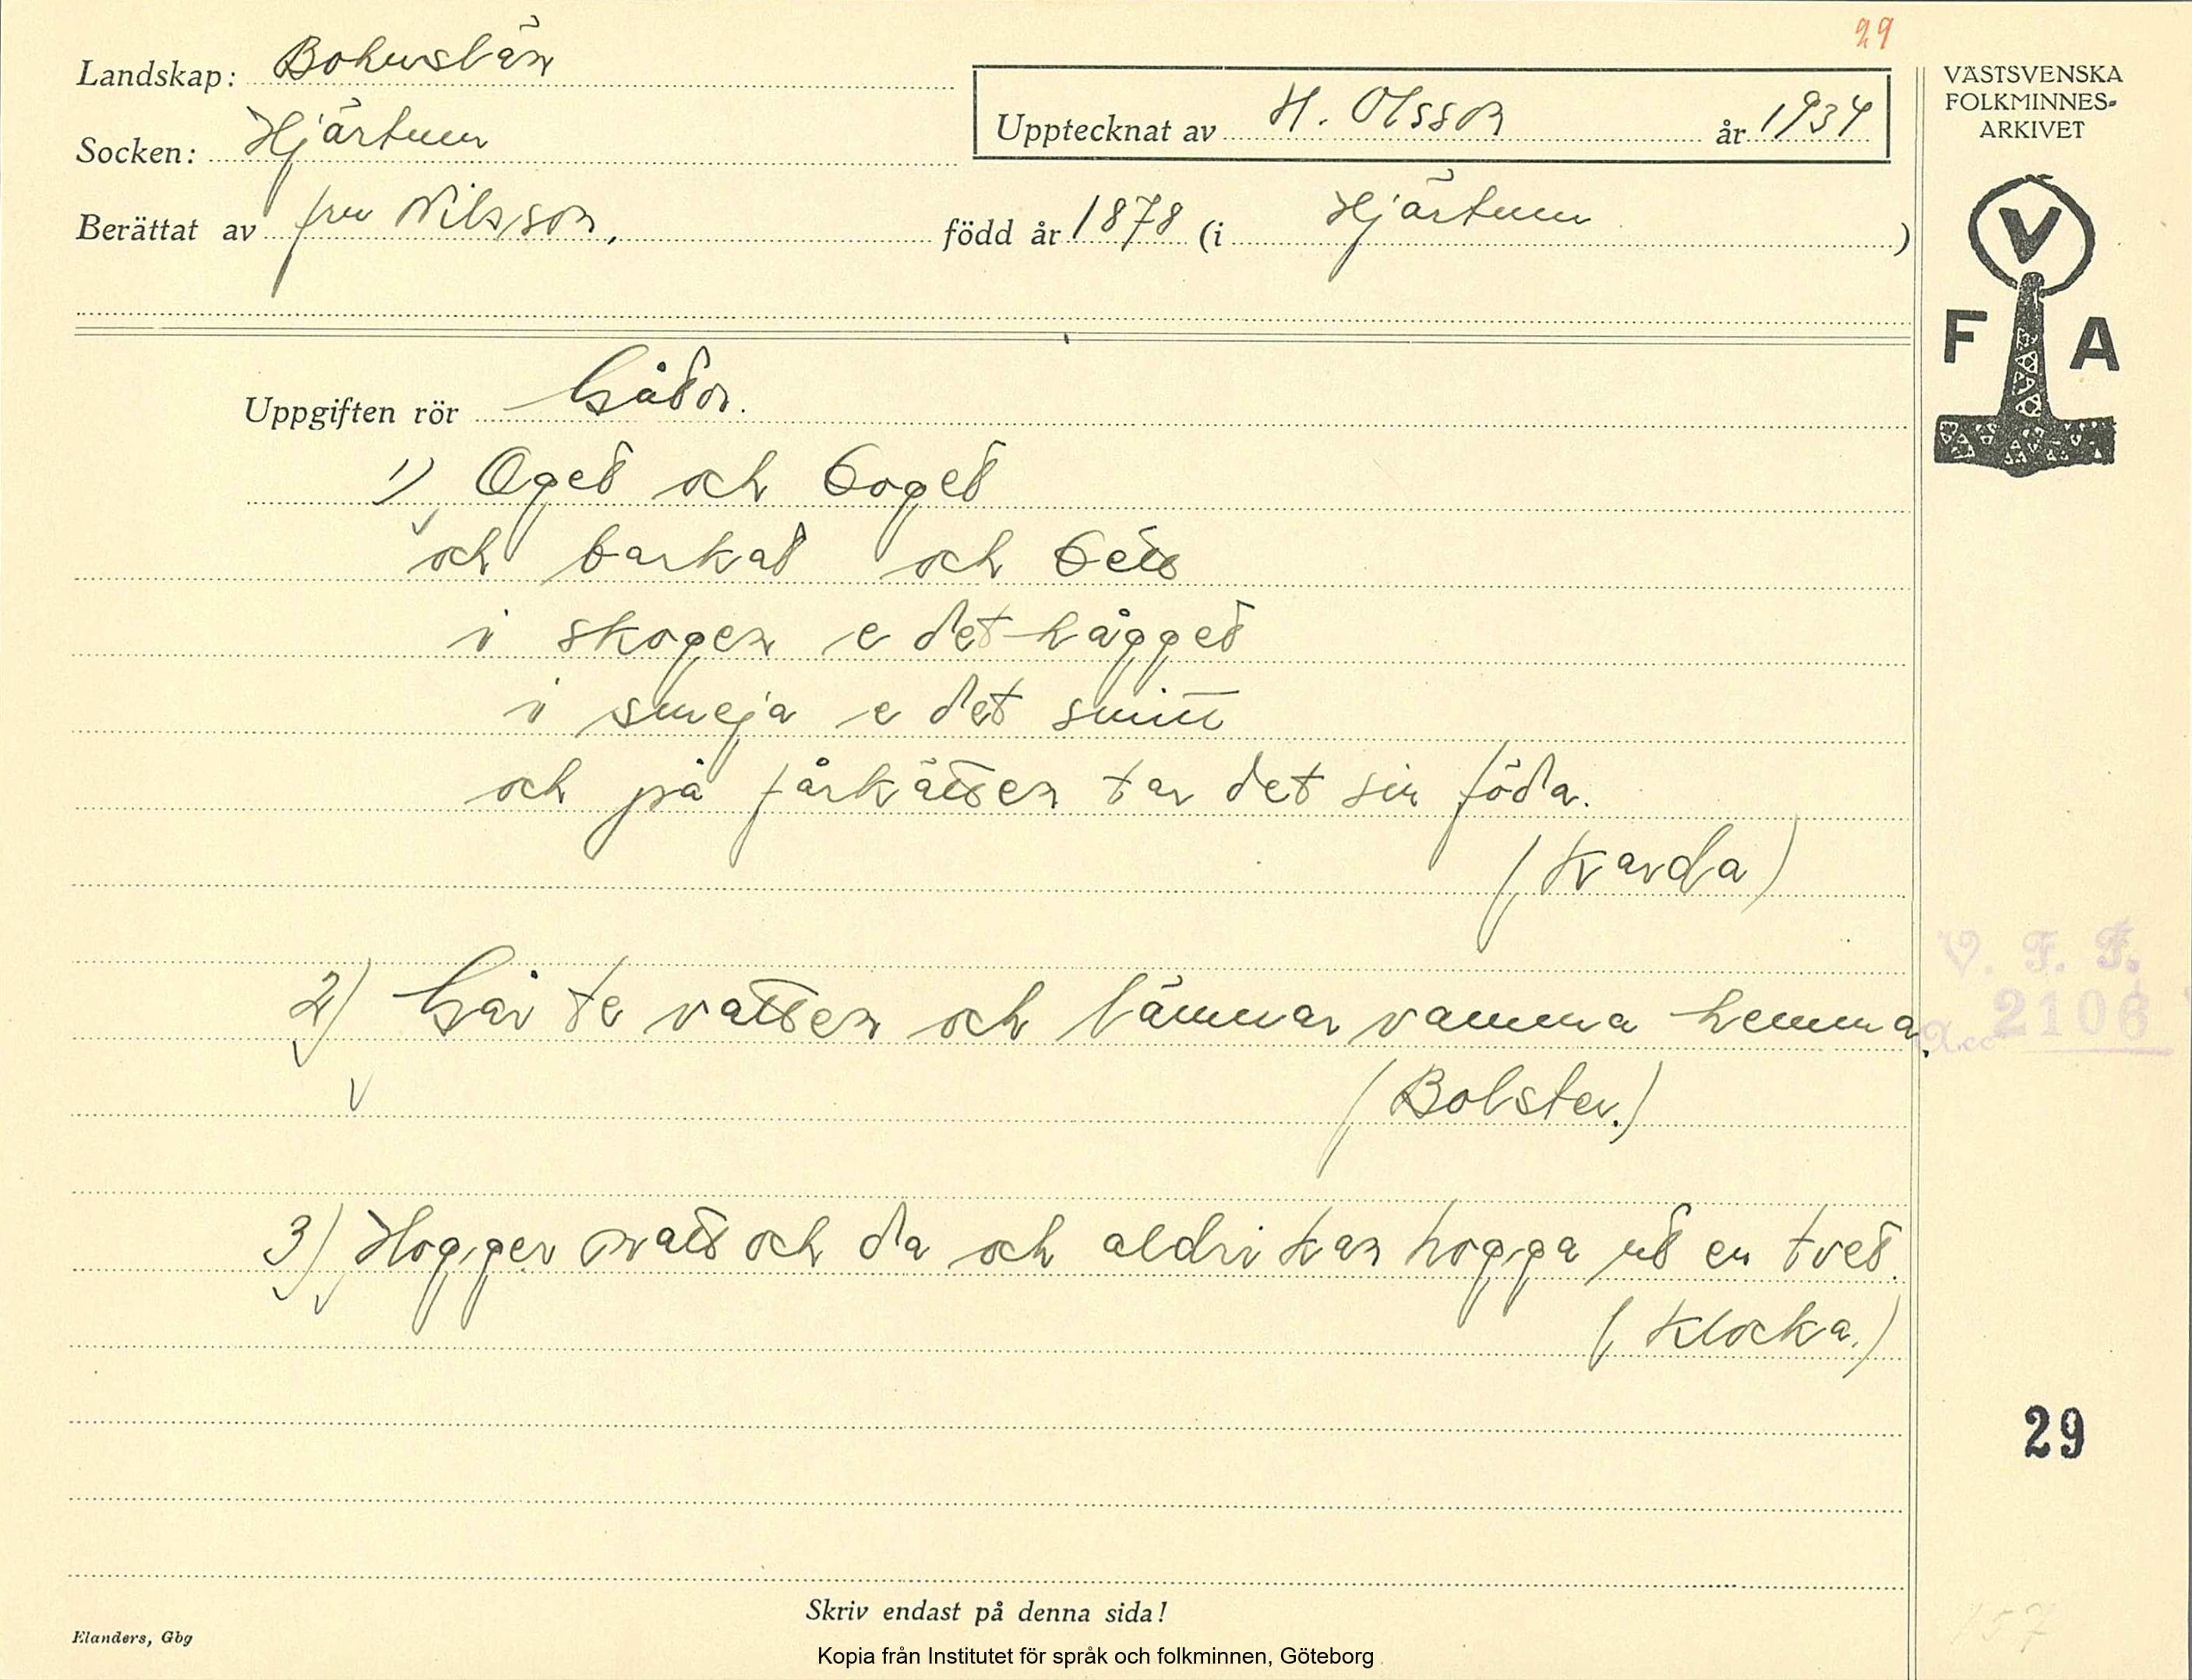 29
Landskap: Bohuslän
Socken: Hjärtum
Upptecknat av H. Olsson år 1934
Berättat av fru Nilsson, född år 1878 (i Hjärtum)
VÄSTSVENSKA
FOLKMINNES-
ARKIVET
V
F A
Uppgiften rör Gåtor.
1) Oget och boget
och barkat och bett
i skogen e det hågget
i smeja e det smitt
och på fårkätten tar det sin föda.
(Karda)
2) Går te vatten och lämnar vamma hemma.
(Bolster.)
V. F. F.
Acc 2106
3) Hogger natt och da och aldri kan hogga ut en tvet.
(Klocka.)
29
Skriv endast på denna sida!
Elanders, Gbg
157
Kopia från Institutet för språk och folkminnen, Göteborg